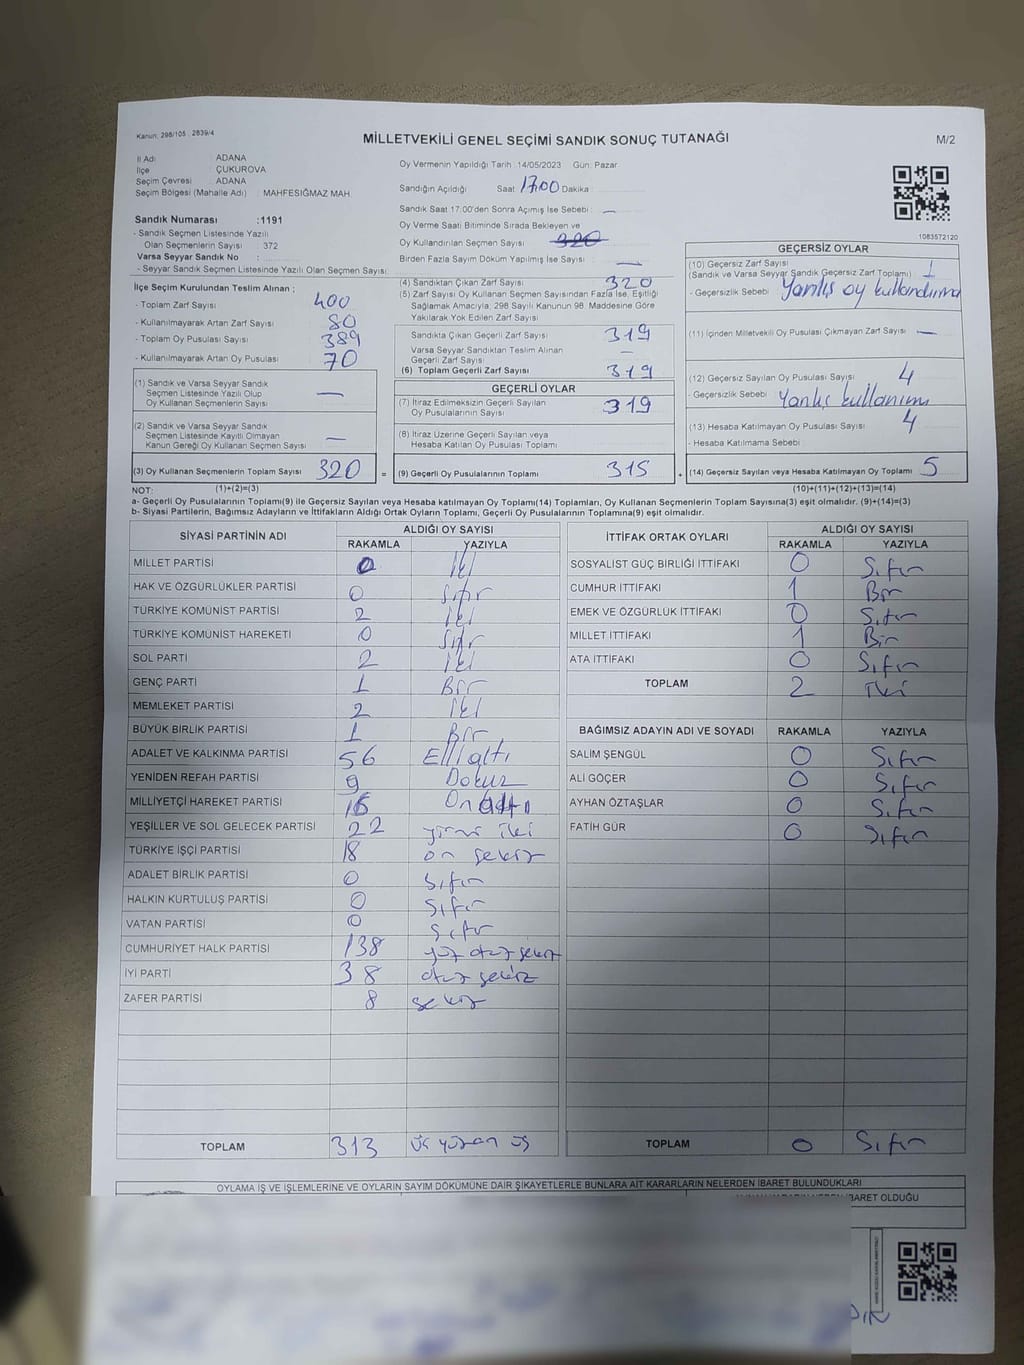 Kanun: 298/105 , 2839/4
MİLLETVEKİLİ GENEL SEÇİMİ SANDIK SONUÇ TUTANAĞI
M/2
İl Adı : ADANA
İlçe : ÇUKUROVA
Seçim Çevresi : ADANA
Seçim Bölgesi (Mahalle Adı) : MAHFESIĞMAZ MAH.
Sandık Numarası :1191
- Sandık Seçmen Listesinde Yazılı
Olan Seçmenlerin Sayısı : 372
Varsa Seyyar Sandık No :
- Seyyar Sandık Seçmen Listesinde Yazılı Olan Seçmen Sayısı:
Oy Vermenin Yapıldığı Tarih :14/05/2023 Gün: Pazar
Sandığın Açıldığı Saat: 17.00 Dakika :
Sandık Saat 17:00'den Sonra Açımış İse Sebebi : —
Oy Verme Saati Bitiminde Sırada Bekleyen ve
Oy Kullandırılan Seçmen Sayısı : 320
Birden Fazla Sayım Döküm Yapılmış İse Sayısı : —
1083572120
İlçe Seçim Kurulundan Teslim Alınan ;
- Toplam Zarf Sayısı : 400
- Kullanılmayarak Artan Zarf Sayısı : 80
- Toplam Oy Pusulası Sayısı : 389
- Kullanılmayarak Artan Oy Pusulası : 70
(1) Sandık ve Varsa Seyyar Sandık
Seçmen Listesinde Yazılı Olup
Oy Kullanan Seçmenlerin Sayısı : —
(2) Sandık ve Varsa Seyyar Sandık
Seçmen Listesinde Kayıtlı Olmayan
Kanun Gereği Oy Kullanan Seçmen Sayısı : —
(3) Oy Kullanan Seçmenlerin Toplam Sayısı 320 =
(4) Sandıktan Çıkan Zarf Sayısı : 320
(5) Zarf Sayısı Oy Kullanan Seçmen Sayısından Fazla İse, Eşitliği
Sağlamak Amacıyla, 298 Sayılı Kanunun 98. Maddesine Göre
Yakılarak Yok Edilen Zarf Sayısı :
Sandıkta Çıkan Geçerli Zarf Sayısı : 319
Varsa Seyyar Sandıktan Teslim Alınan
Geçerli Zarf Sayısı : —
(6) Toplam Geçerli Zarf Sayısı : 319
GEÇERLİ OYLAR
(7) İtiraz Edilmeksizin Geçerli Sayılan
Oy Pusulalarının Sayısı : 319
(8) İtiraz Üzerine Geçerli Sayılan veya
Hesaba Katılan Oy Pusulası Toplamı :
(9) Geçerli Oy Pusulalarının Toplamı : 315 +
GEÇERSİZ OYLAR
(10) Geçersiz Zarf Sayısı
(Sandık ve Varsa Seyyar Sandık Geçersiz Zarf Toplamı) : 1
- Geçersizlik Sebebi : Yanlış oy kullandırma
(11) İçinden Milletvekili Oy Pusulası Çıkmayan Zarf Sayısı : —
(12) Geçersiz Sayılan Oy Pusulası Sayısı : 4
- Geçersizlik Sebebi : Yanlış kullanım
(13) Hesaba Katılmayan Oy Pusulası Sayısı : 4
- Hesaba Katılmama Sebebi :
(14) Geçersiz Sayılan veya Hesaba Katılmayan Oy Toplamı : 5
NOT: (1)+(2)=(3) (10)+(11)+(12)+(13)=(14)
a- Geçerli Oy Pusulaları Toplamı(9) ile Geçersiz Sayılan veya Hesaba katılmayan Oy Toplamı(14) Toplamları, Oy Kullanan Seçmenlerin Toplam Sayısına(3) eşit olmalıdır. (9)+(14)=(3)
b- Siyasi Partilerin, Bağımsız Adayların ve İttifakların Aldığı Ortak Oyların Toplamı, Geçerli Oy Pusulalarının Toplamına(9) eşit olmalıdır.
SİYASİ PARTİNİN ADI ALDIĞI OY SAYISI
RAKAMLA YAZIYLA
MİLLET PARTİSİ 0 İki
HAK VE ÖZGÜRLÜKLER PARTİSİ 0 Sıfır
TÜRKİYE KOMÜNİST PARTİSİ 2 İki
TÜRKİYE KOMÜNİST HAREKETİ 0 Sıfır
SOL PARTİ 2 İki
GENÇ PARTİ 1 Bir
MEMLEKET PARTİSİ 2 İki
BÜYÜK BİRLİK PARTİSİ 1 Bir
ADALET VE KALKINMA PARTİSİ 56 Elli altı
YENİDEN REFAH PARTİSİ 9 Dokuz
MİLLİYETÇİ HAREKET PARTİSİ 16 On altı
YEŞİLLER VE SOL GELECEK PARTİSİ 22 yirmi iki
TÜRKİYE İŞÇİ PARTİSİ 18 on sekiz
ADALET BİRLİK PARTİSİ 0 Sıfır
HALKIN KURTULUŞ PARTİSİ 0 Sıfır
VATAN PARTİSİ 0 Sıfır
CUMHURİYET HALK PARTİSİ 138 yüz otuz sekiz
İYİ PARTİ 38 otuz sekiz
ZAFER PARTİSİ 8 sekiz
TOPLAM 313 üç yüz on üç
İTTİFAK ORTAK OYLARI ALDIĞI OY SAYISI
RAKAMLA YAZIYLA
SOSYALIST GÜÇ BİRLİĞİ İTTİFAKI 0 Sıfır
CUMHUR İTTİFAKI 1 Bir
EMEK VE ÖZGÜRLÜK İTTİFAKI 0 Sıfır
MİLLET İTTİFAKI 1 Bir
ATA İTTİFAKI 0 Sıfır
TOPLAM 2 İki
BAĞIMSIZ ADAYIN ADI VE SOYADI RAKAMLA YAZIYLA
SALİM ŞENGÜL 0 Sıfır
ALİ GÖÇER 0 Sıfır
AYHAN ÖZTAŞLAR 0 Sıfır
FATİH GÜR 0 Sıfır
TOPLAM 0 Sıfır
OYLAMA İŞ VE İŞLEMLERİNE VE OYLARIN SAYIM DÖKÜMÜNE DAİR ŞİKAYETLERLE BUNLARA AİT KARARLARIN NELERDEN İBARET BULUNDUKLARI
İBARET OLDUĞU